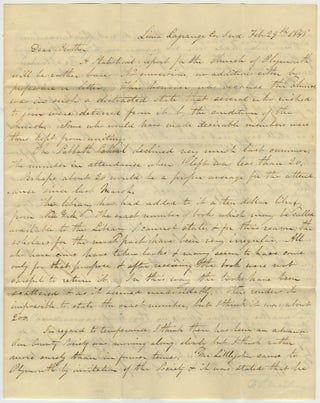 Lima Lagrange Co Ind Feb 29th 1845
Dear Brother
A Statistical report for the Church of Plymouth
will be rather bare. No conversions no additions either by
profession or letter. Last summer was because the Church
was in such a distracted state that several who wished
to join were deterred from it by the condition of the
church. Some who would have made desirable members were
thus kept from uniting.
The Sabbath School declined very much last summer
The number in attendance when I left was less than 20.
Perhaps about 20 would be a proper average for the attend
ance since last March.
The library has had added to it a ten dollar library
from New York. The exact number of books which may be called
available to the Library I cannot state, & for this reason, the
scholars for the most part have been very irregular. All
who have come have taken books & many seem to have come
only for that purpose & after receiving the book were not
careful to return it. In this way the books have been
scattered & as it seemed unavoidably. This renders it
impossible to state the exact number, but I think it was about
200.
In regard to temperance I think there has been an advance
Our County Society was moving along slowly but I think rather
more surely than in former times. Mr Littlejohn came to
Plymouth by invitation of the Society & it was stated that he